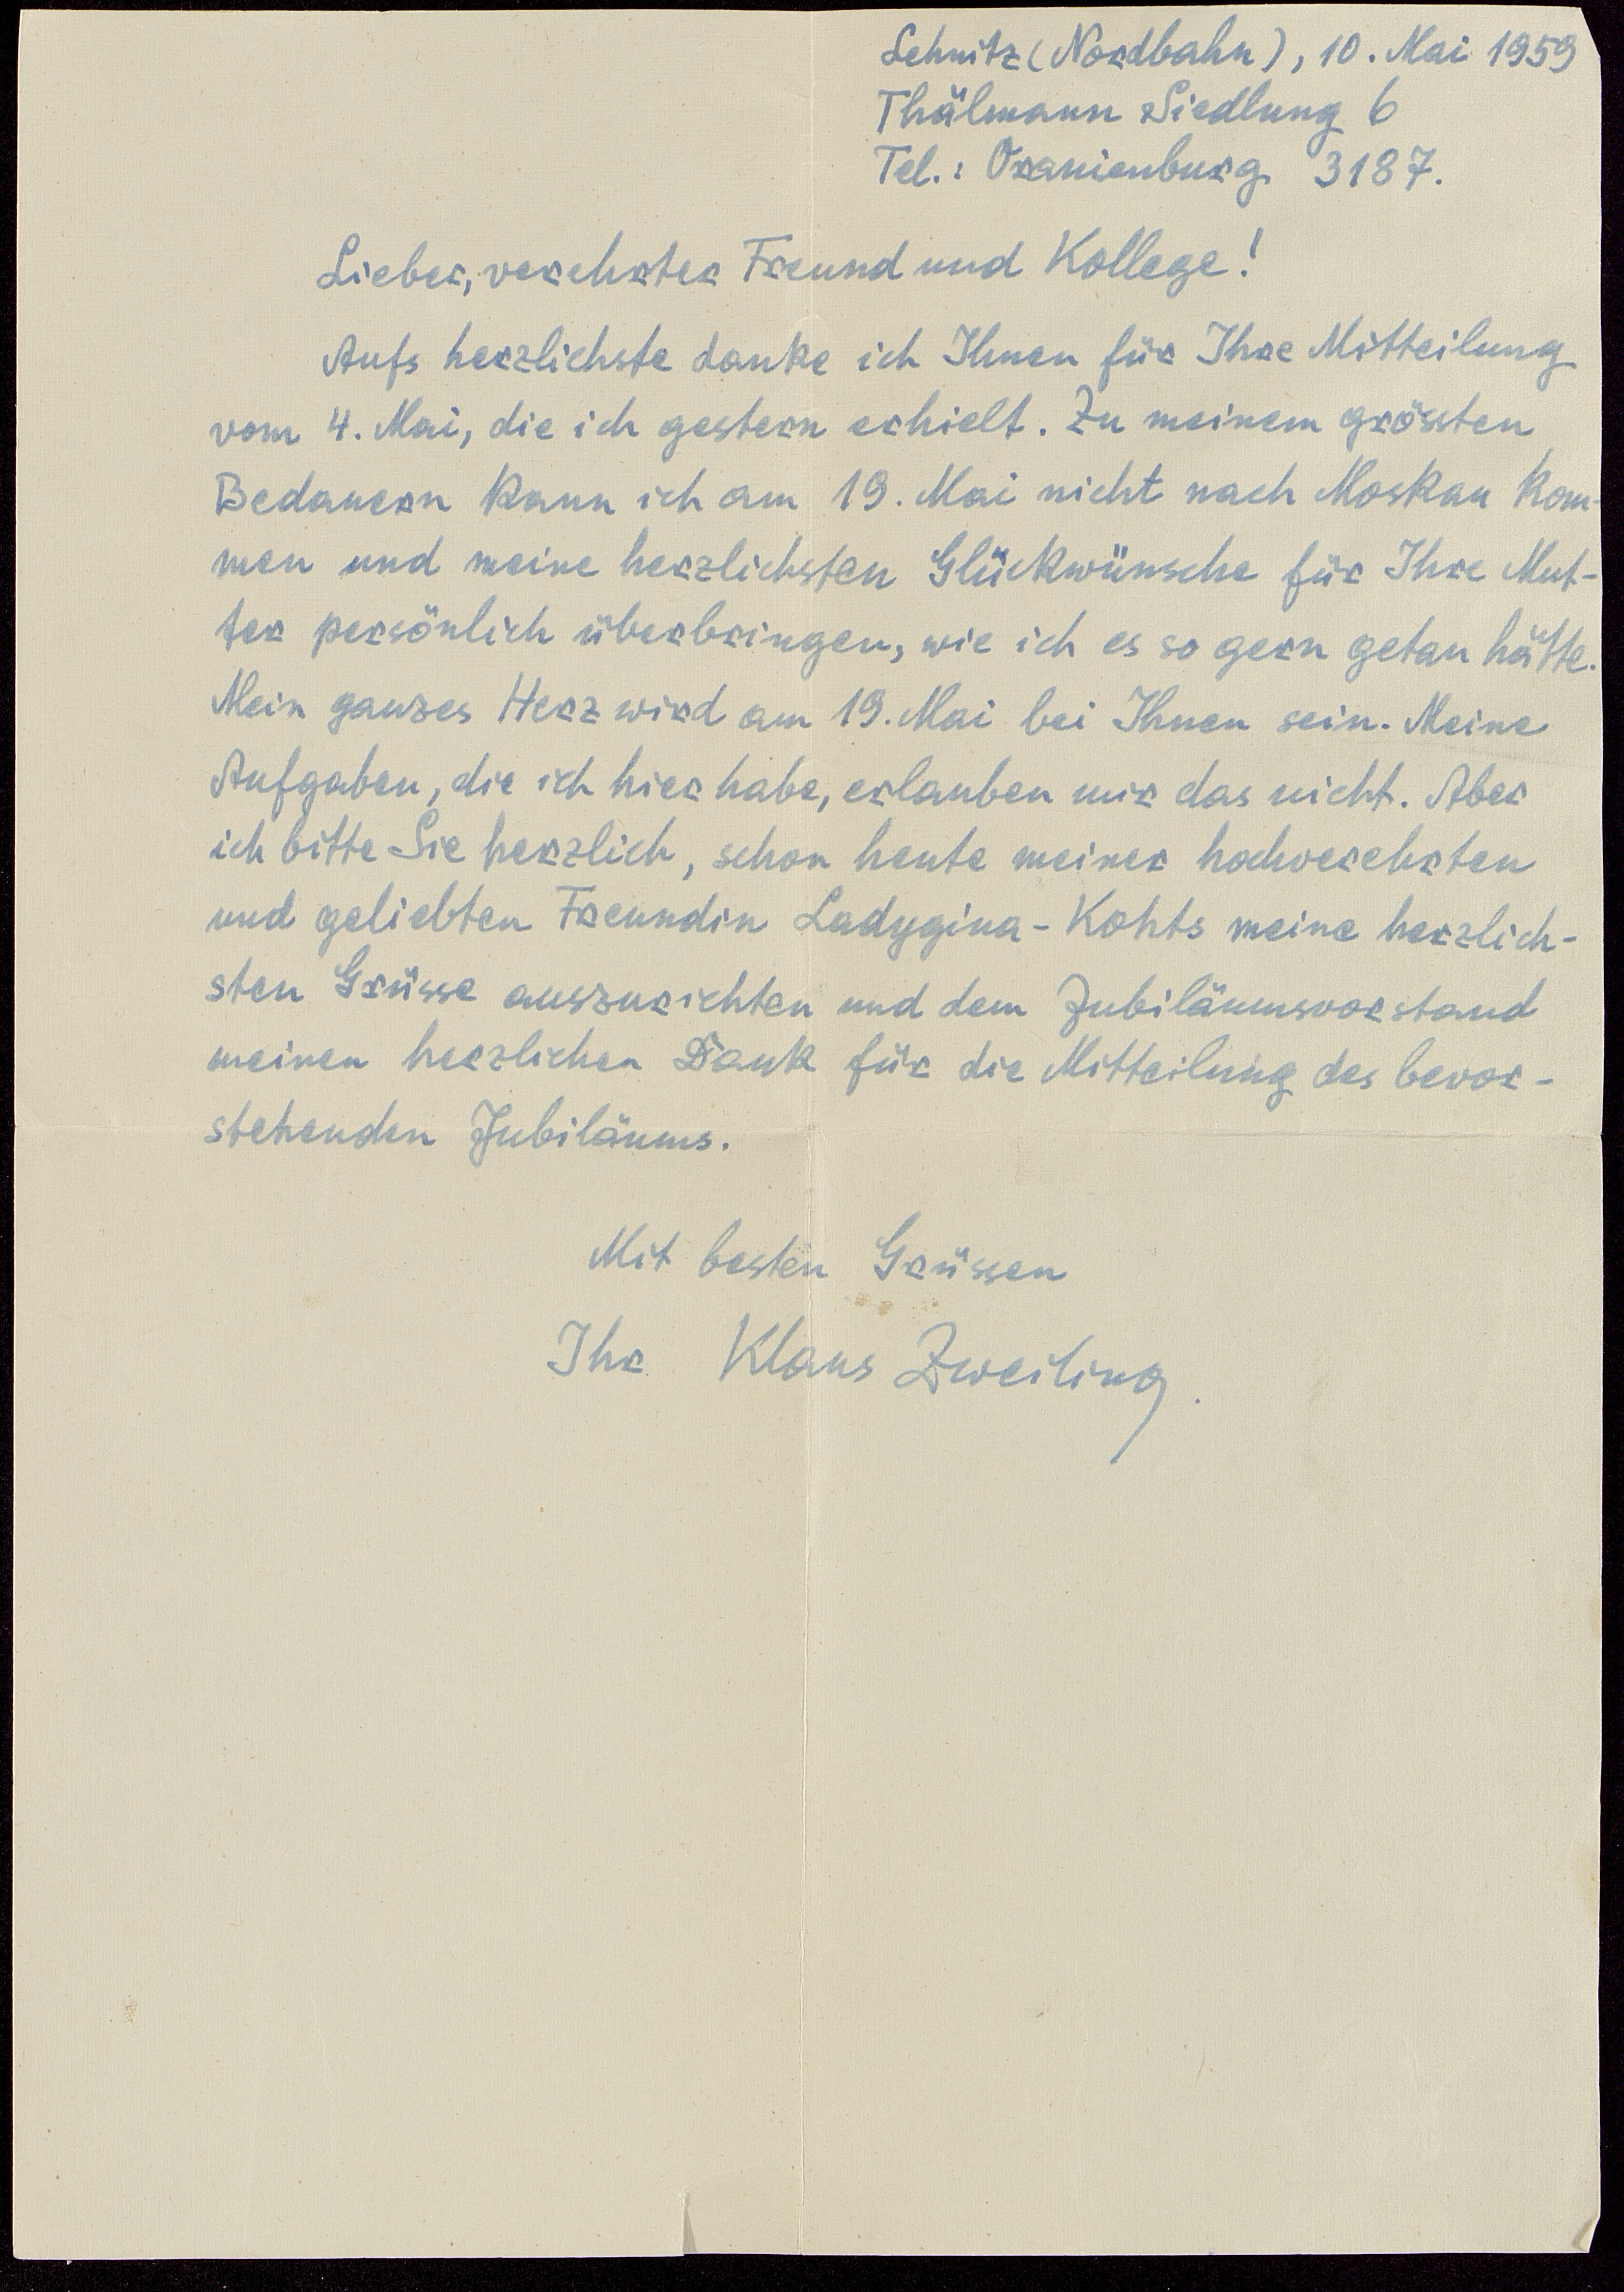 Lehnitz (Nordbahn), 10. Mai 1959
Thälmann Siedlung 6
Tel.: Oranienburg 3187.
Lieber, verehrter Freund und Kollege!
Aufs herzlichste danke ich Ihnen für Ihre Mitteilung
vom 4. Mai, die ich gestern erhielt. Zu meinem grössten
Bedauern kann ich am 19. Mai nicht nach Moskau kom-
men und meine herzlichsten Glückwünsche für Ihre Mut-
ter persönlich überbringen, wie ich es so gern getan hätte.
Mein ganzes Herz wird am 19. Mai bei Ihnen sein. Meine
Aufgaben, die ich hier habe, erlauben mir das nicht. Aber
ich bitte Sie herzlich, schon heute meiner hochverehrten
und geliebten Freundin Ladygina-Kohts meine herzlich-
sten Grüsse auszurichten und dem Jubiläumsvorstand
meinen herzlichen Dank für die Mitteilung des bevor-
stehenden Jubiläums.
Mit besten Grüssen
Ihr Klaus Zweiling.